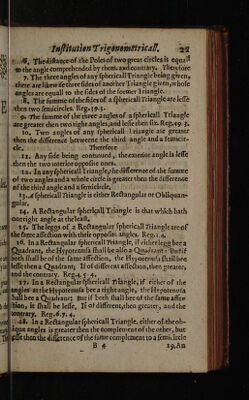 Institution Trigonometricall. 22
6. The distance of the Poles of two great circles is equall
to the angle comprehended by them. and contrary. Therefore
7. The three angles of any sphericall Triangle being given,
there are likewise three sides of another Triangle given, whose
angles are equall to the sides of the former Triangle.
8. The summe of the sides of a sphericall Triangle are lesse
then two semicircles. Reg. 39. 3.
9. The summe of the three angles of a sphericall Triangle
are greater then two right angles, and lesse then six. Reg. 49. 3.
10. Two angles of any sphericall Triangle are greater
then the difference betweene the third angle and a semicir-
cle. Therefore
11. Any side being continued, the exterior angle is lesse
then the two interior opposite ones.
12. In any sphericall Triangle, the difference of the summe
of two angles and a whole circle is greater than the difference
of the third angle and a semicircle.
13. A sphericall Triangle is either Rectangular or Obliquan-
gular.
14. A Rectangular sphericall Triangle is that which hath
one right angle at the least.
15. The leggs of a Rectangular sphericall Triangle are of
the same affection with their opposite angles. Reg. 1. 4.
16. In a Rectangular sphericall Triangle, if either legg be a
Quadrant, the Hypotenusa shall be also a Quadrant: But if
both shall be of the same affection, the Hypotenusa shall be
lesse then a Quadrant; If of different affection, then greater,
and the contrary. Reg. 4. 5. 4.
17. In a Rectangular sphericall Triangle, if either of the
angles at the Hypotenusa bee a right angle, the Hypotenusa
shall bee a Quadrant; But if both shall bee of the same affec-
tion, it shall be lesse, If of different, then greater, and the
contrary. Reg. 6. 7. 4.
18. In a Rectangular sphericall Triangle, either of the ob-
lique angles is greater then the complement of the other, but
lesse then the difference of the same complement to a semicircle
B 4 19. An